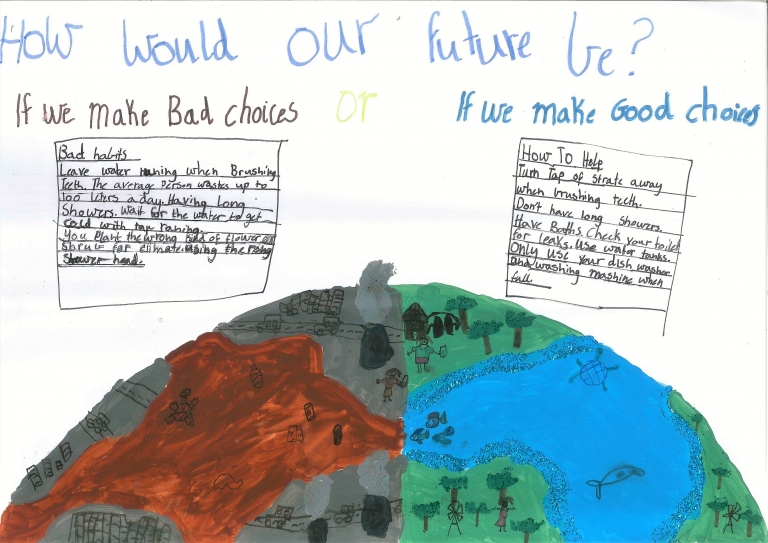 How would our future be?
If we make Bad choices or If we make Good choices
Bad habits
Leave water runing when Brushing
Teeth. The average person wastes up to
100 liters a day. Having Long
Showers. Wait for the water to get
cold with tap raning.
You Plant the wrong kind of flower or
Shrub for climate. Using the
Shower head.
How To Help
Turn Tap of strate away
when brushing teeth.
Don't have long showers.
Have Baths. Check your toilet
for leaks. Use water tanks.
Only use your dish washer
and washing mashine when
full